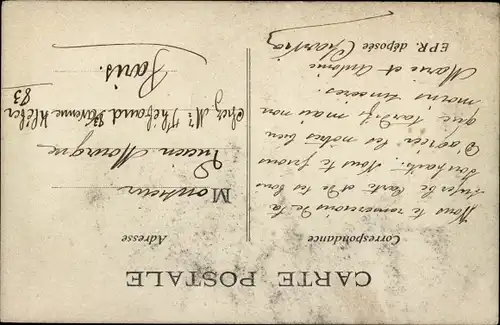 CARTE POSTALE
Correspondance
Nous te remercions de ta
carte et de tes bons
souhaits. Nous te prions
les nôtres bien
que tardifs mais non
moins sincères.
Marie et Antoine
EPR. déposée
Adresse
Monsieur
Lucien
Chez Mr
Avenue Kléber
83
Paris.